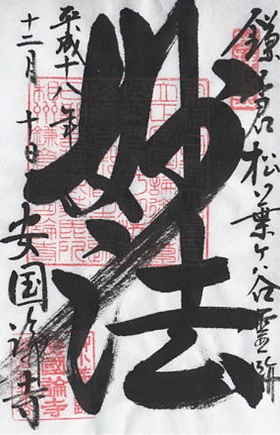 鎌倉松葉ヶ谷霊跡
妙法
平成十八年
十二月十日
安国論寺